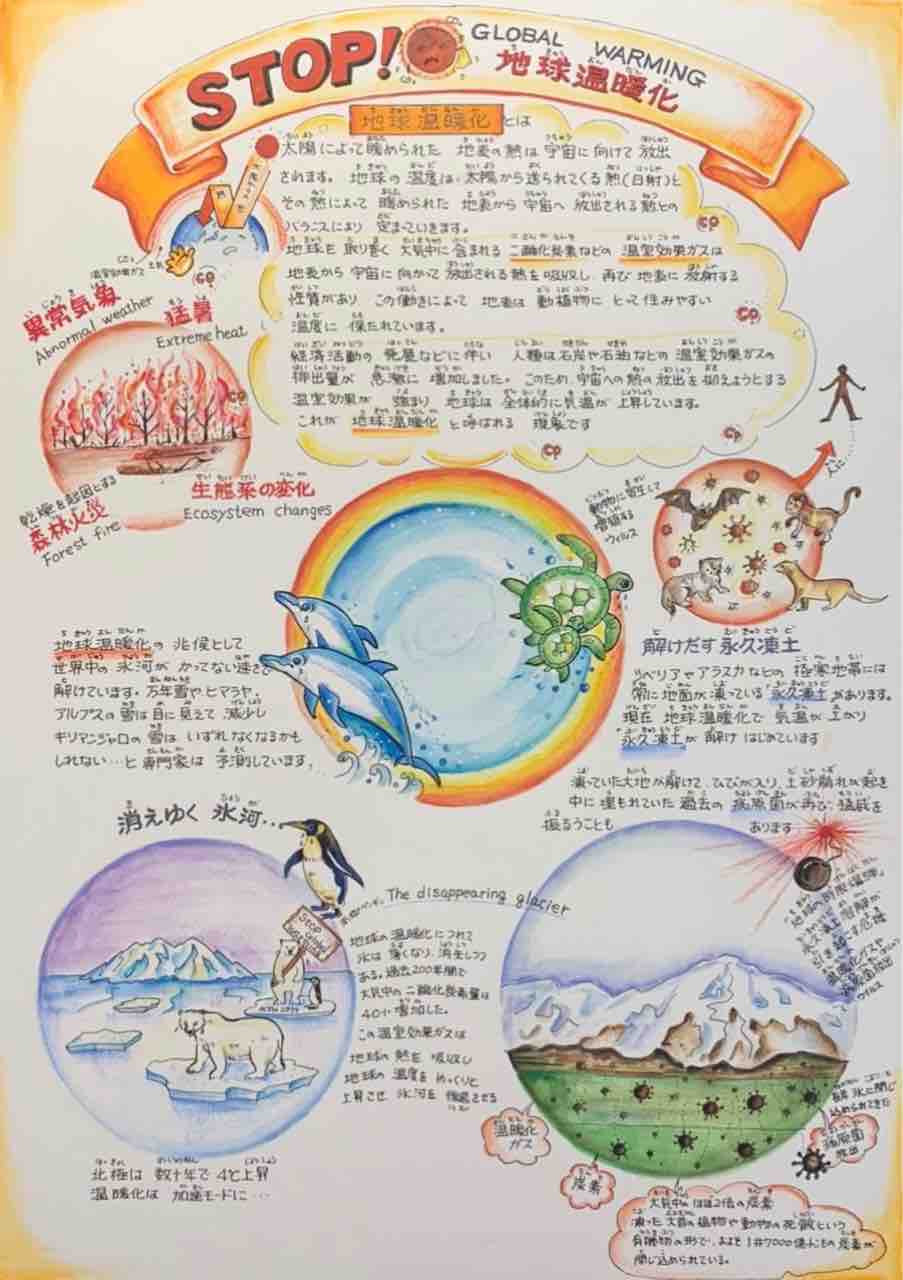 STOP!
GLOBAL WARMING
地球温暖化
地球温暖化とは
太陽によって暖められた 地表の熱は宇宙に向けて放出
されます。地球の温度は、太陽から送られてくる熱(日射)と
その熱によって 暖められた 地表から宇宙へ 放出される熱との
バランスにより 定まっていきます。
地球を取り巻く大気中に含まれる二酸化炭素などの温室効果ガスは
地表から宇宙に向かって放出される熱を吸収し、再び地表に放射する
性質があり この働きによって 地表は 動植物に とって住みやすい
温度に 保たれています。
経済活動の 発展などに伴い 人類は石炭や石油などの温室効果ガスの
排出量が 急激に 増加しました。このため、宇宙への熱の放出を抑えようとする
温室効果が 強まり 地球は全体的に気温が上昇しています。
これが 地球温暖化 と呼ばれる 現象です
異常気象
Abnormal weather
猛暑
Extreme heat
乾燥を起因とする
森林火災
Forest fire
生態系の変化
Ecosystem changes
動物に寄生して
増殖する
ウィルス
人に…
地球温暖化の 兆候として
世界中の 氷河が かつてない速さで
解けています。万年雪やヒマラヤ、
アルプスの雪は目に見えて 減少し
キリマンジャロの 雪は いずれなくなるかも
しれない…と専門家は 予測しています。
解けだす永久凍土
シベリアやアラスカなどの 極寒地帯には
常に地面が凍っている 永久凍土があります。
現在 地球温暖化で 気温が上がり
永久凍土が 解け はじめています
凍っていた大地が解けて、ひびが入り、土砂崩れが起き
中に埋もれていた過去の 病原菌が再び、猛威を
振るうことも あります
消えゆく 氷河…
The disappearing glacier
STOP
地球の 温暖化につれて
氷は 薄くなり、消失しつつ
ある。過去200年間で
大気中の 二酸化炭素量は
40%増加した。
この温室効果ガスは
地球の 熱を 吸収し
地球の 温度を ゆっくりと
上昇させ 氷河を 後退させる
北極は 数十年で 4℃上昇
温暖化は 加速モードに…
「地球の時限爆弾」
永久凍土溶解が
引き起こす危機
温暖化ガスや
病原菌放出
ウィルス
氷に閉じ
込められてきた
病原菌
放出
温暖化
ガス
炭素
大気中のほぼ2倍の炭素
凍った太古の植物や動物の死骸という
有機物の形で、およそ1兆7000億トンもの炭素が
閉じ込められている。